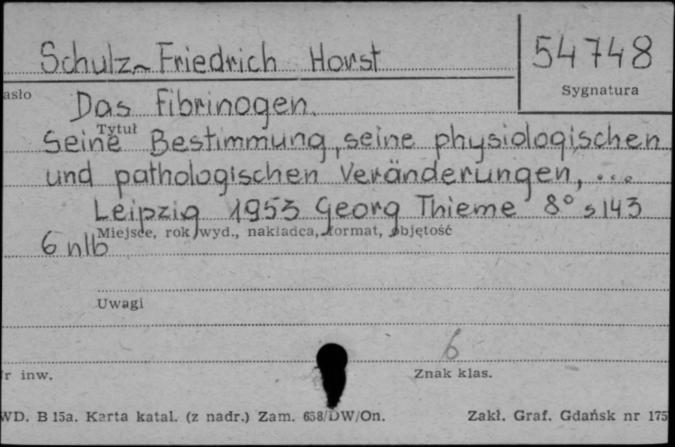 Schulz~Friedrich Horst
54748
Sygnatura
asło
Das Fibrinogen.
Tytuł
Seine Bestimmung, seine physiologischen
und pathologischen Veränderungen, ...
Leipzig 1953 Georg Thieme 8° s 143
Miejsce, rok wyd., nakładca, format, objętość
6 nlb
Uwagi
6
r inw.
Znak klas.
WD. B 15a. Karta katal. (z nadr.) Zam. 658/DW/On.
Zakł. Graf. Gdańsk nr 175